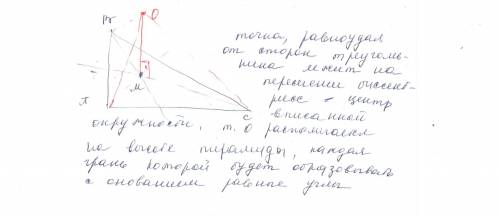 О
М
С
точка, равноудал
от сторон треуголь-
ника лежит на
пересечении биссект-
рисс - центр
вписанной
окружности, т. О располагается
на высоте пирамиды, каждая
грань которой будет образовывать
с онованием равные углы